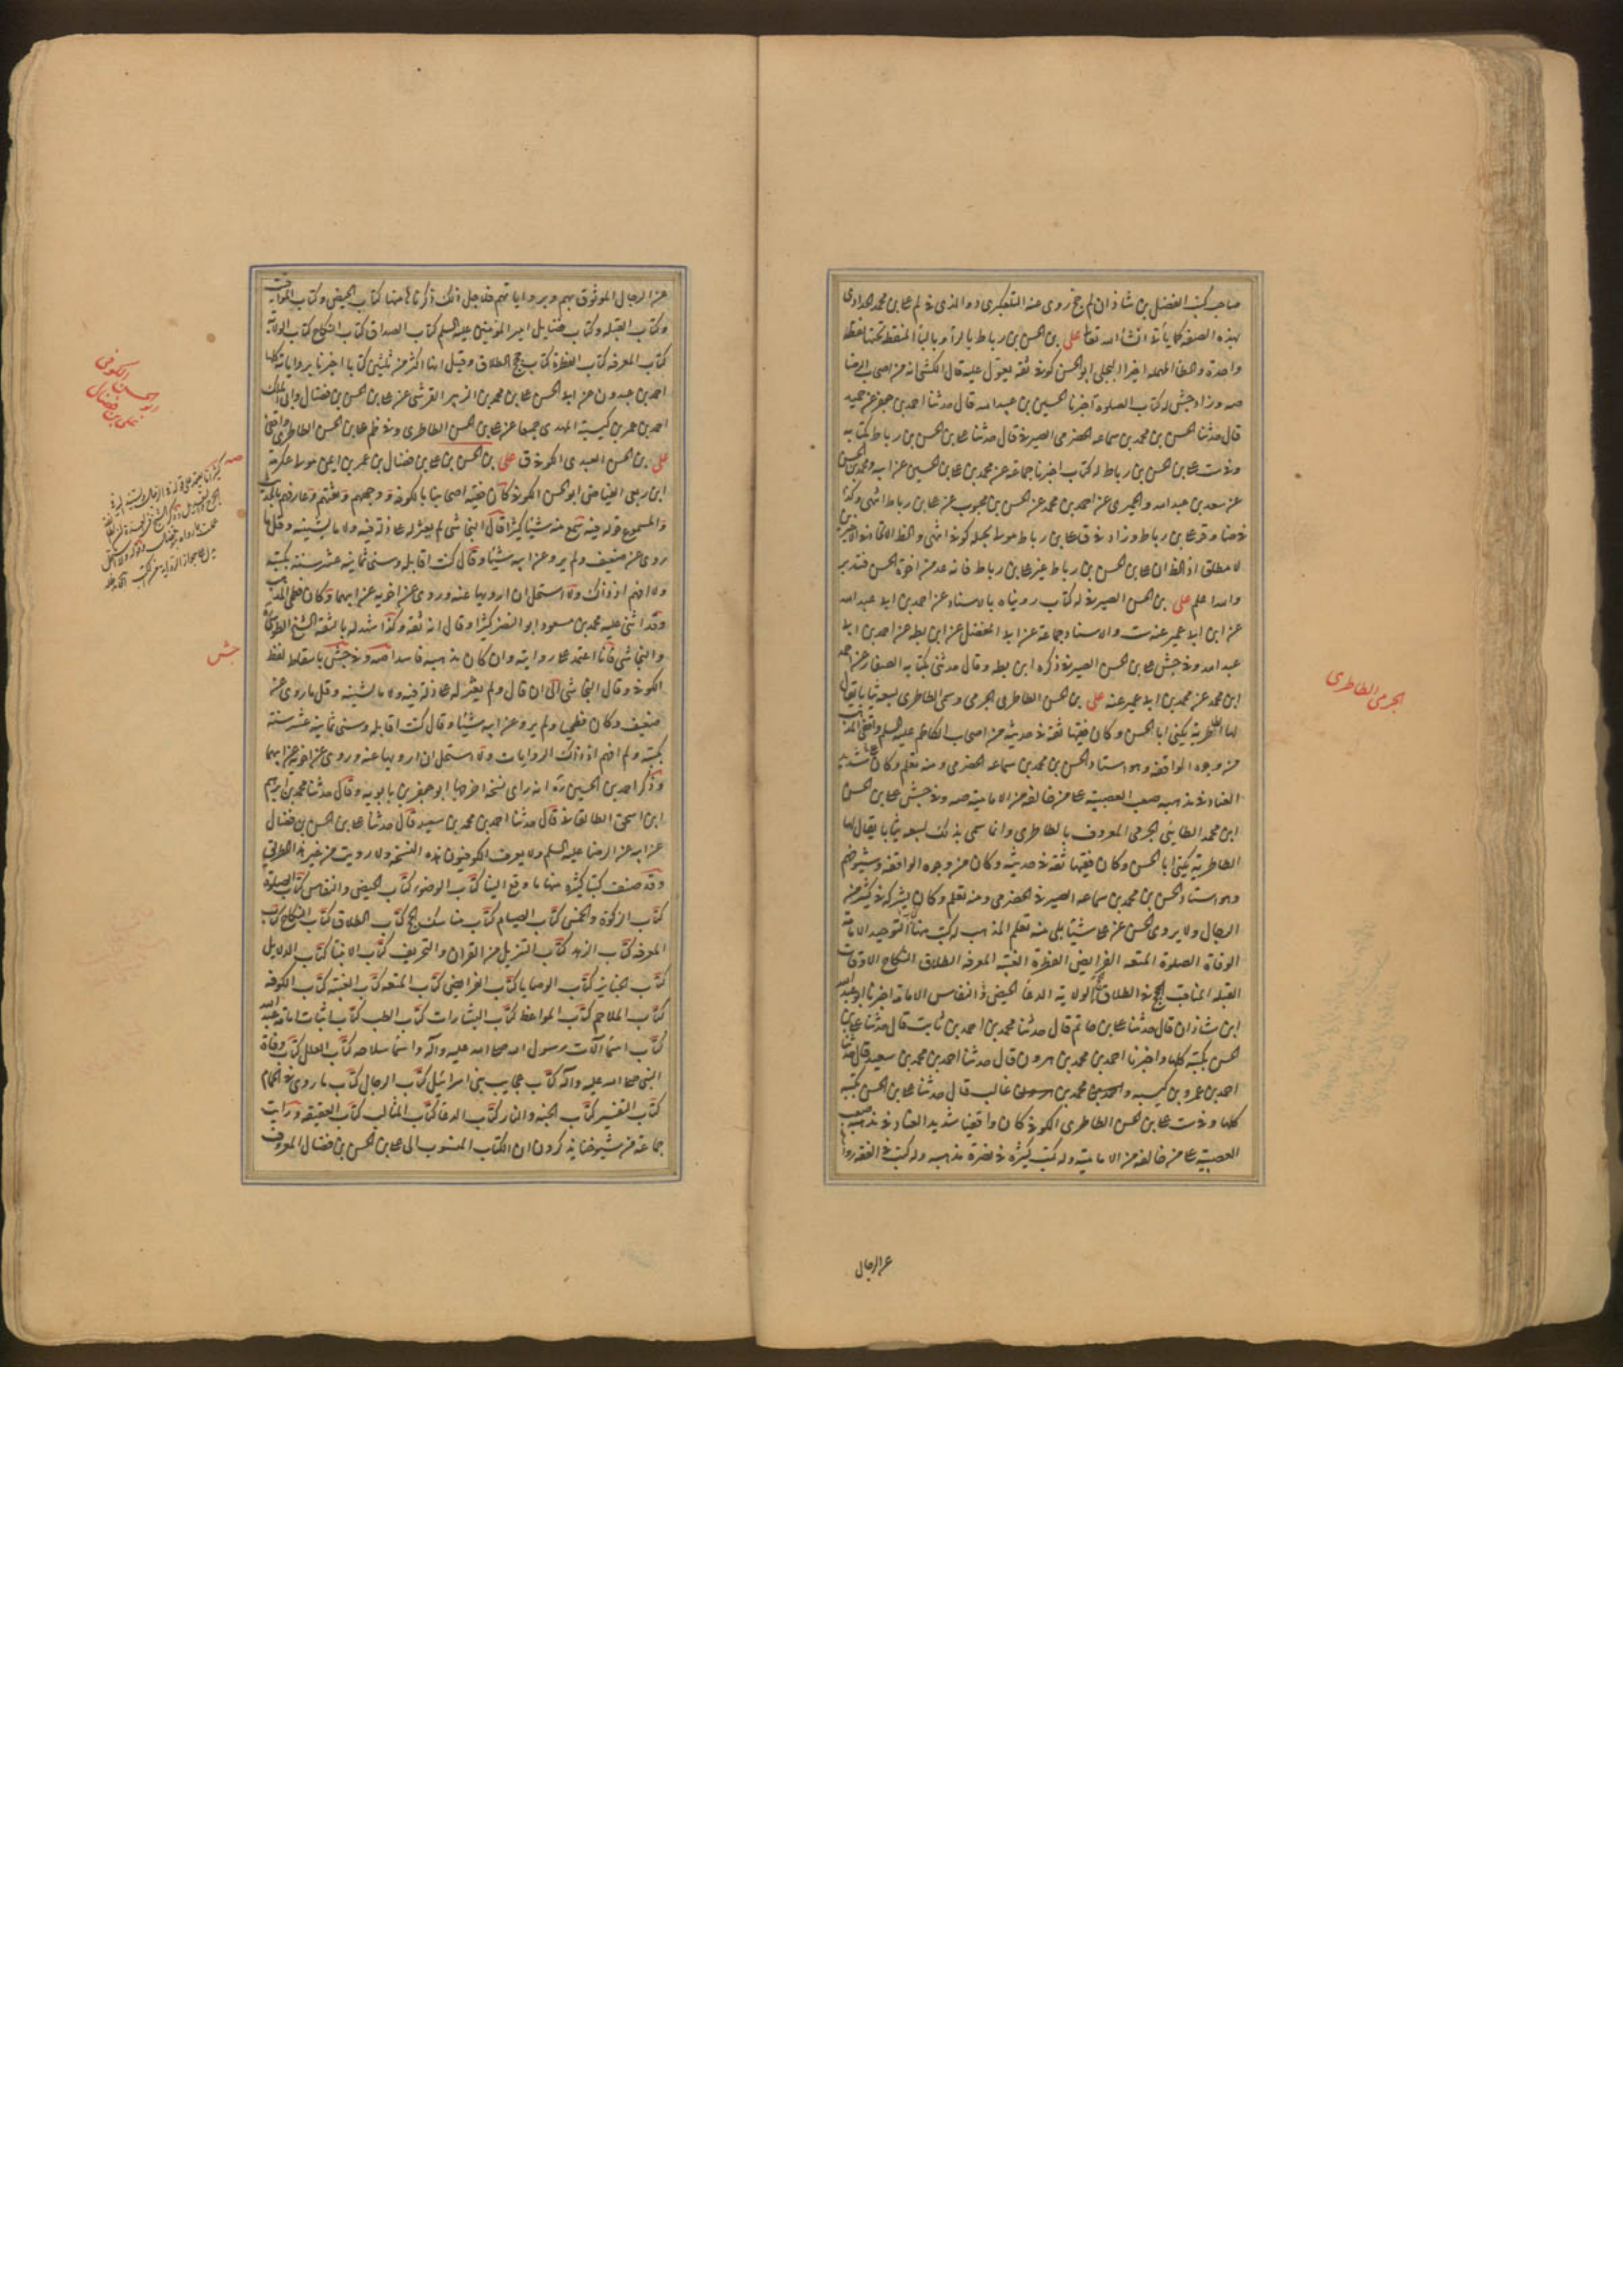 صاحب كتب الفضل بن شاذان لم جخ روى عنه التلعكبرى دو الذى فى لم على بن محمد
بهذه الصفة كما يأتى انشاء الله تعالى على بن الحسن بن رباط بالراء وبالباء المنقطة تحتها نقطة
واحدة والطاء المهملة اخيرا البجلى ابو الحسن كوفى ثقة يعول عليه قال الكشى انه من اصحاب الرضا
صه وزاد جش له كتاب الصلوة اخبرنا الحسين بن عبيد الله قال حدثنا احمد بن جعفر عن حميد
قال حدثنا الحسن بن محمد بن سماعه الحضرمى الصيرفى قال حدثنا على بن الحسن بن رباط بكتابه
وفى ست على بن الحسن بن رباط له كتاب اخبرنا جماعة عن محمد بن على بن الحسين عن ابيه ومحمد بن الحسن
عن سعد بن عبد الله والحميرى عن احمد بن محمد عن الحسن بن محبوب عن على بن رباط انتهى
على بن رباط وزاد فى ق على بن رباط مولى بجيله كوفى انتهى والظ
اذ الظ ان على بن الحسن بن رباط غير على بن رباط فانه عد من اخوة الحسن فتدبر
والله اعلم على بن الحسن الصيرفى له كتاب رويناه بالاسناد عن احمد بن ابى عبد الله
عن ابن ابى عمير عنه ست والاسناد جماعة عن ابى المفضل عن ابن بطه عن احمد بن ابى
عبد الله وفى جش على بن الحسن الصيرفى ذكره ابن بطه وقال حدثنى بكتابه الصفار عن احمد
ابن محمد عن محمد بن ابى عمير عنه على بن الحسن الطاطرى الجرمى وسمى الطاطرى لبيعه ثيابا يقال
لها الطاطرية يكنى ابا الحسن وكان فقيها ثقة فى حديثه من اصحاب الكاظم عليه السلم واقفى المذهب
من وجوه الواقفه وهو استاد الحسن بن محمد بن سماعه الحضرمى ومنه تعلم وكان شديد
العناد فى مذهبه صعب العصبية على من خالفه من الاماميه صه وفى جش على بن الحسن
ابن محمد الطائى الجرمى المعروف بالطاطرى وانما سمى بذلك لبيعه ثيابا يقال لها
الطاطرية يكنى ابا الحسن وكان فقيها ثقة فى حديثه وكان من وجوه الواقفه وشيوخهم
وهو استاد الحسن بن محمد بن سماعه الصيرفى الحضرمى ومنه تعلم وكان يشركه فى كثير من
الرجال ولا يروى الحسن عن على شيئا بلى منه تعلم المذهب له كتب منها التوحيد الامامة
الوفاة الصلوة المتعه الفرايض الفطرة الغيبه المعرفه الطلاق النكاح الاوقات
القبله المناقب الحج فى الطلاق الولايه الدعا الحيض والنفاس الامامة اخبرنا ابو عبد الله
ابن شاذان قال حدثنا على بن حاتم قال حدثنا محمد بن احمد بن ثابت قال حدثنا على بن
الحسن بكتبه كلها واخبرنا احمد بن محمد بن هرون قال حدثنا احمد بن محمد بن سعيد قال حدثنا
احمد بن عمرو بن كيسبه و محمد بن غالب قال حدثنا على بن الحسن بكتبه
كلها وفى ست على بن الحسن الطاطرى الكوفى كان واقفيا شديد العناد فى مذهبه صعب
العصبية على من خالفه من الاماميه وله كتب كثيرة فى نصرة مذهبه وله كتب فى الفقه رواها
عن الرجال
الجرمى الطاطرى
عن الرجال الموثوق بهم وبرواياتهم فلاجل ذلك ذكرناها منها كتاب الحيض وكتاب المواقيت
وكتاب القبله وكتاب فضايل امير المؤمنين عليه السلم كتاب الصداق كتاب النكاح كتاب الولاية
كتاب المعرفه كتاب الفطرة كتاب حجج الطلاق وقيل انها اكثر من ثلثين كتابا اخبرنا برواياته كلها
احمد بن عبدون عن ابى الحسن على بن محمد بن الزبير القرشى عن على بن الحسن بن فضال وابى الملك
احمد بن عمر بن كيسبة النهدى جميعا عن على بن الحسن الطاطرى وفى ظم على بن الحسن الطاطرى واقفى
على بن الحسن العبدى الكوفى ق على بن الحسن بن على بن فضال بن عمر بن ايمن مولى عكرمة
ابن ربعى الفياض ابو الحسن الكوفى كان فقيه اصحابنا بالكوفة ووجههم وثقتهم وعارفهم بالحديث
والمسموع قوله فيه سمع منه شيئا كثيرا قال النجاشى لم يعثر له على زلة فيه ولا ما يشينه وقل ما
روى عن ضعيف ولم يرو عن ابيه شيئا وقال كنت اقابله وسنى ثمانيه عشر سنة بكتبه
ولا افهم اذ ذاك ولا استحل ان ارويها عنه وروى عن اخويه عن ابيهما وكان فطحى المذهب
وقد اثنى عليه محمد بن مسعود ابو النضر كثيرا وقال انه ثقة وكذا شهد له بالثقة الشيخ الطوسى
والنجاشى فانا اعتمد على روايته وان كان مذهبه فاسدا صه وفى جش باسقاط لفظ
الكوفى وقال النجاشى الى ان قال ولم يعثر له على زلة فيه ولا ما يشينه وقل ما روى عن
ضعيف وكان فطحيا ولم يرو عن ابيه شيئا وقال كنت اقابله وسنى ثمانية عشر سنة
بكتبه ولم افهم اذ ذاك الروايات ولا استحل ان ارويها عنه وروى عن اخويه عن ابيهما
وذكر احمد بن الحسين ره انه راى نسخة اخرجها ابو جعفر بن بابويه وقال حدثنا محمد بن ابرهيم
ابن اسحق الطالقانى قال حدثنا احمد بن محمد بن سعيد قال حدثنا على بن الحسن بن فضال
عن ابيه عن الرضا عليه السلم ولا يعرف الكوفيون هذه النسخة ولا رويت من غير هذا الطريق
وقد صنف كتبا كثيرة منها ما وقع الينا كتاب الوضوء كتاب الحيض والنفاس كتاب الصلوة
كتاب الزكوة والخمس كتاب الصيام كتاب مناسك الحج كتاب الطلاق كتاب النكاح كتاب
المعرفه كتاب الزهد كتاب التنزيل من القران والتحريف كتاب الانبيا كتاب الدلايل
كتاب الجنايز كتاب الوصايا كتاب الفرايض كتاب المتعه كتاب الغيبه كتاب الكوفه
كتاب الملاحم كتاب المواعظ كتاب البشارات كتاب الطب كتاب اثبات امامة عبد الله
كتاب اسما آلات رسول الله صلى الله عليه وآله واسما سلاحه كتاب العلل كتاب وفاة
النبى صلى الله عليه وآله كتاب عجايب بنى اسرائيل كتاب الرجال كتاب ما روى فى الحمام
كتاب التفسير كتاب الجنه والنار كتاب الدعا كتاب المثالب كتاب العقيقه ورايت
جماعة من شيوخنا يذكرون ان الكتاب المنسوب الى على بن الحسن بن فضال المعروف
جش